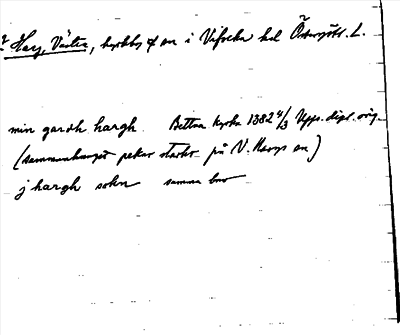 ? Harg, Västra, kyrkby o/ sn i Vifolka hd Östergötl. L.
min gardh hargh. Bettna kyrka 1382 4/3 Upps. dipl. orig.
(sammanhanget pekar starkt på V. Hargs sn)
j hargh sokn samma brev